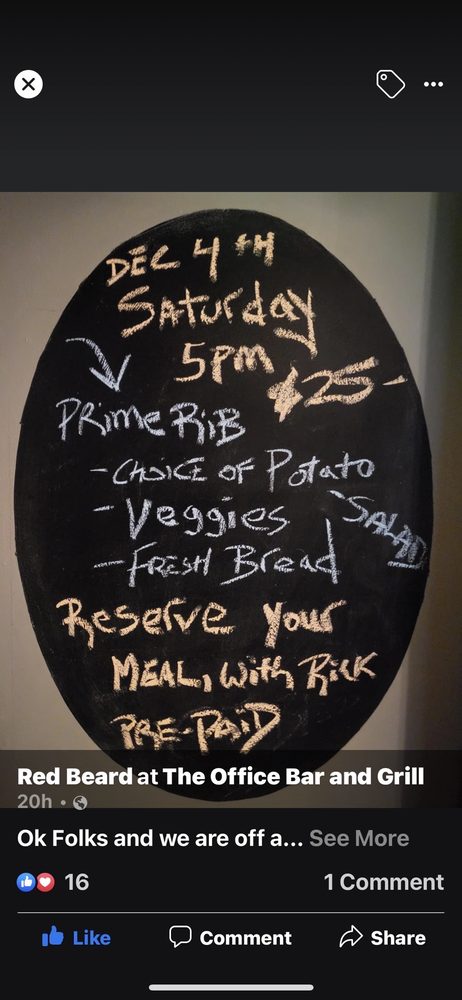 DEC 4TH
Saturday
5pm
$25-
PRime RiB
- CHOICE OF Potato
- Veggies
- SALAD
- FRESH Bread
Reserve your
MEAL, with Rick
PRE-PAiD
Red Beard at The Office Bar and Grill
20h •
Ok Folks and we are off a... See More
16
1 Comment
Like
Comment
Share